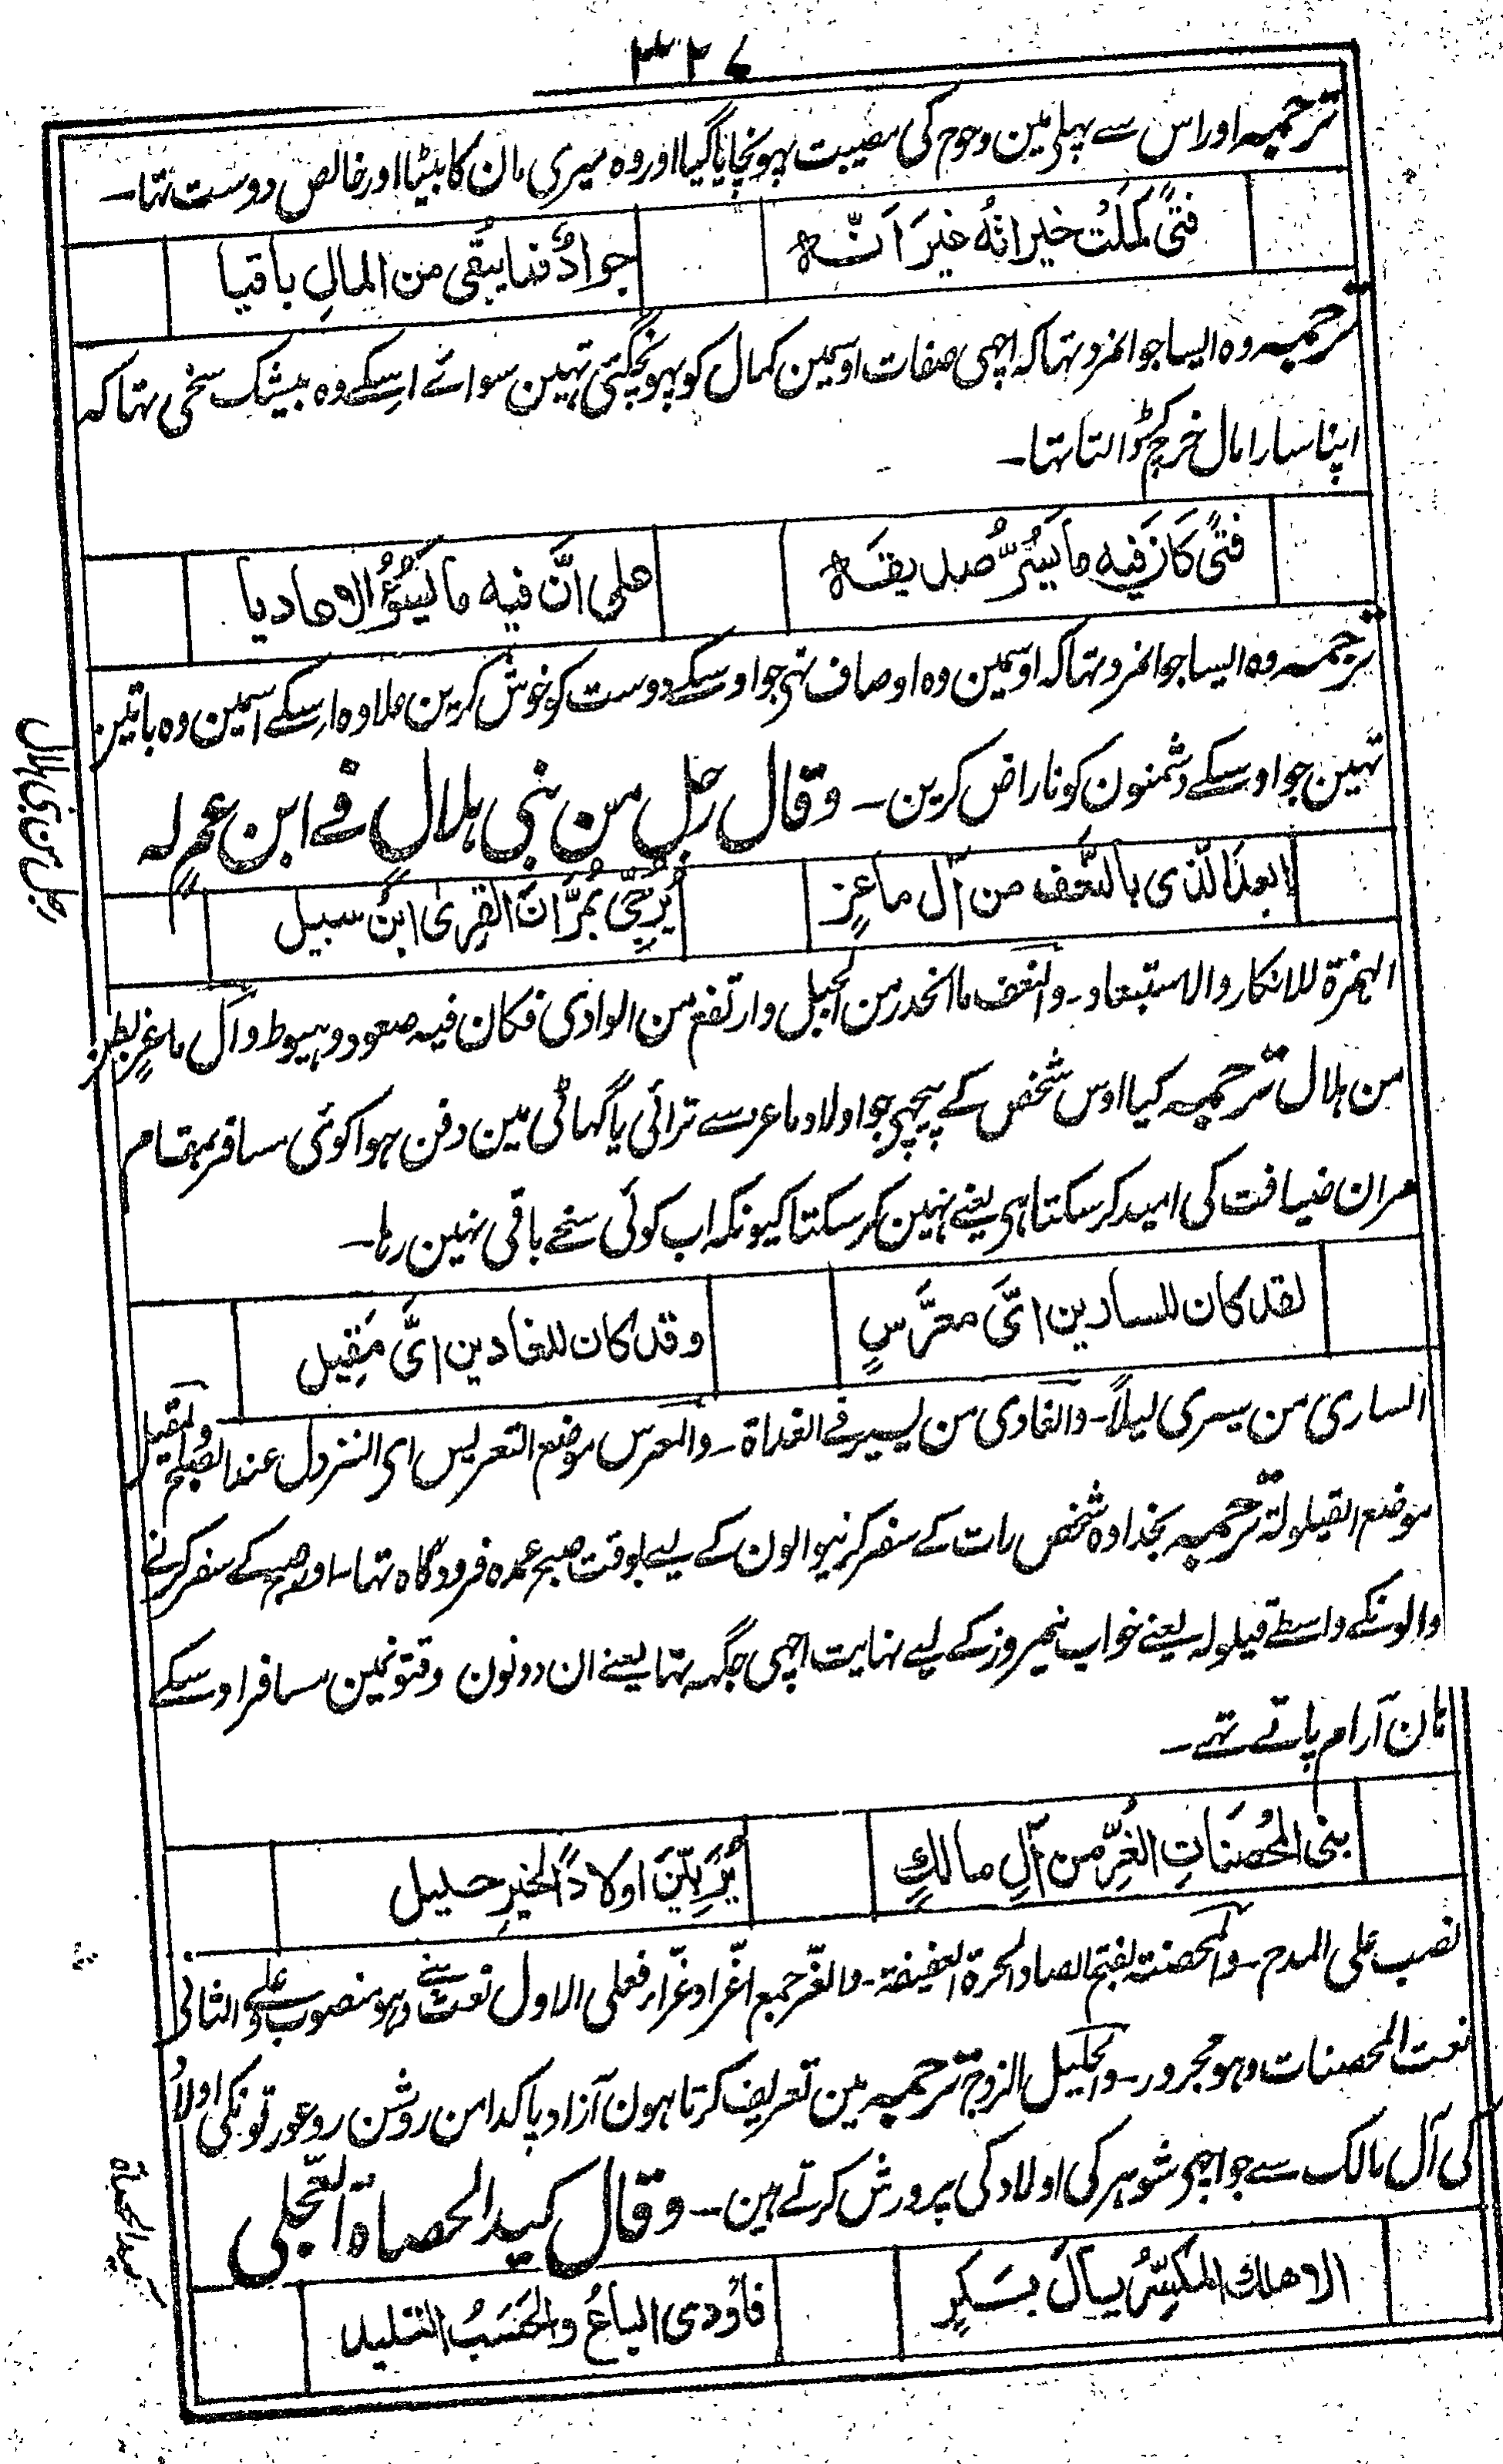 ۳۲۷
ترجمہ اور اس سے پہلی مین وحوم کی مصیبت پہونچایا گیا اور وہ میری مان کا بیٹا اور خالص دوست تہا۔
فتًی کَمُلَتْ خیراتُہ غیرَ اَنَّہ
جوادٌ فما یُبقی من المالِ باقیا
ترجمہ وہ ایسا جوانمرد تہا کہ اچہی صفات اوسمین کمال کو پہونچگئی تہین سوائے اسکے وہ بیشک سخی تہا کہ
اپنا سارا مال خرچ کر ڈالتا تہا۔
فتًی کَانَ فیہ ما یَسُرُّ صدیقَہ
علی انَّ فیہ ما یَسُوْءُ الاعادیا
ترجمہ وہ ایسا جوانمرد تہا کہ اوسمین وہ اوصاف تہی جو اوسکے دوست کو خوش کرین علاوہ اسکے اسمین وہ باتین
تہین جو اوسکے دشمنون کو ناراض کرین۔ وقال رجل من بنی ہلال فے ابن عمٍ لہ
رجل من بنی ہلال
ابعدَ الذی بالنَّعف من آل ماعزٍ
یُرَجّٰی بمَرَّانَ القِرٰی ابنُ سبیل
الہمزۃ للانکار والاستبعاد۔ والنعف ما انحدر من الجبل وارتفع من الوادی فکان فیہ صعود وہبوط وآل ماعزٍ بطن
من ہلال ترجمہ کیا اوس شخص کے پیچہی جو اولاد ماعز سے ترائی یا گہاٹی مین دفن ہوا کوئی مسافر بمقام
مران ضیافت کی امید کرسکتا ہی یعنے نہین کرسکتا کیونکہ اب کوئی سخے باقی نہین رہا۔
لقد کان للسارین ایَّ معرَّسٍ
وقد کان للغادین ایَّ مَقِیل
الساری من یسری لیلاً۔ والغادی من یسیر فے الغداۃ۔ والمعرس موضع التعریس ای النزول عند الصبح والمقیل
موضع القیلولۃ ترجمہ بخدا وہ شخص رات کے سفر کرنیوالون کے لیے بوقت صبح عمدہ فرودگاہ تہا۔ اور صبح کے سفر کرنے
والونکے واسطے قیلولہ یعنے خواب نیمروز کے لیے نہایت اچہی جگہہ تہا یعنے ان دونون وقتونمین مسافر اوسکے
ہان آرام پاتے تہے۔
بنی المُحصَنَاتِ الغُرِّ من آلِ مالكٍ
یُرَبِّیْنَ اولاداً لخیرِ حلیل
نصب علی المدح۔ والمحصنۃ بفتح الصاد الحرۃ العفیفۃ۔ والغر جمع اغر او غراء فعلی الاول نعت بنے وہو منصوب وعلی الثانی
نعت المحصنات وہو مجرور۔ والحلیل الزوج ترجمہ مین تعریف کرتا ہون آزاد پاکدامن روشن رو عورتونکی اولاد
کی آل مالک سے جو اچہی شوہر کی اولاد کی پرورش کرتے ہین۔ وقال کبد الحصاۃ العجلی
کبد الحصاۃ
الا هلك المکسِّرُ یالَ بَکرٍ
فاَوْدی الباعُ والحَسَبُ التلید